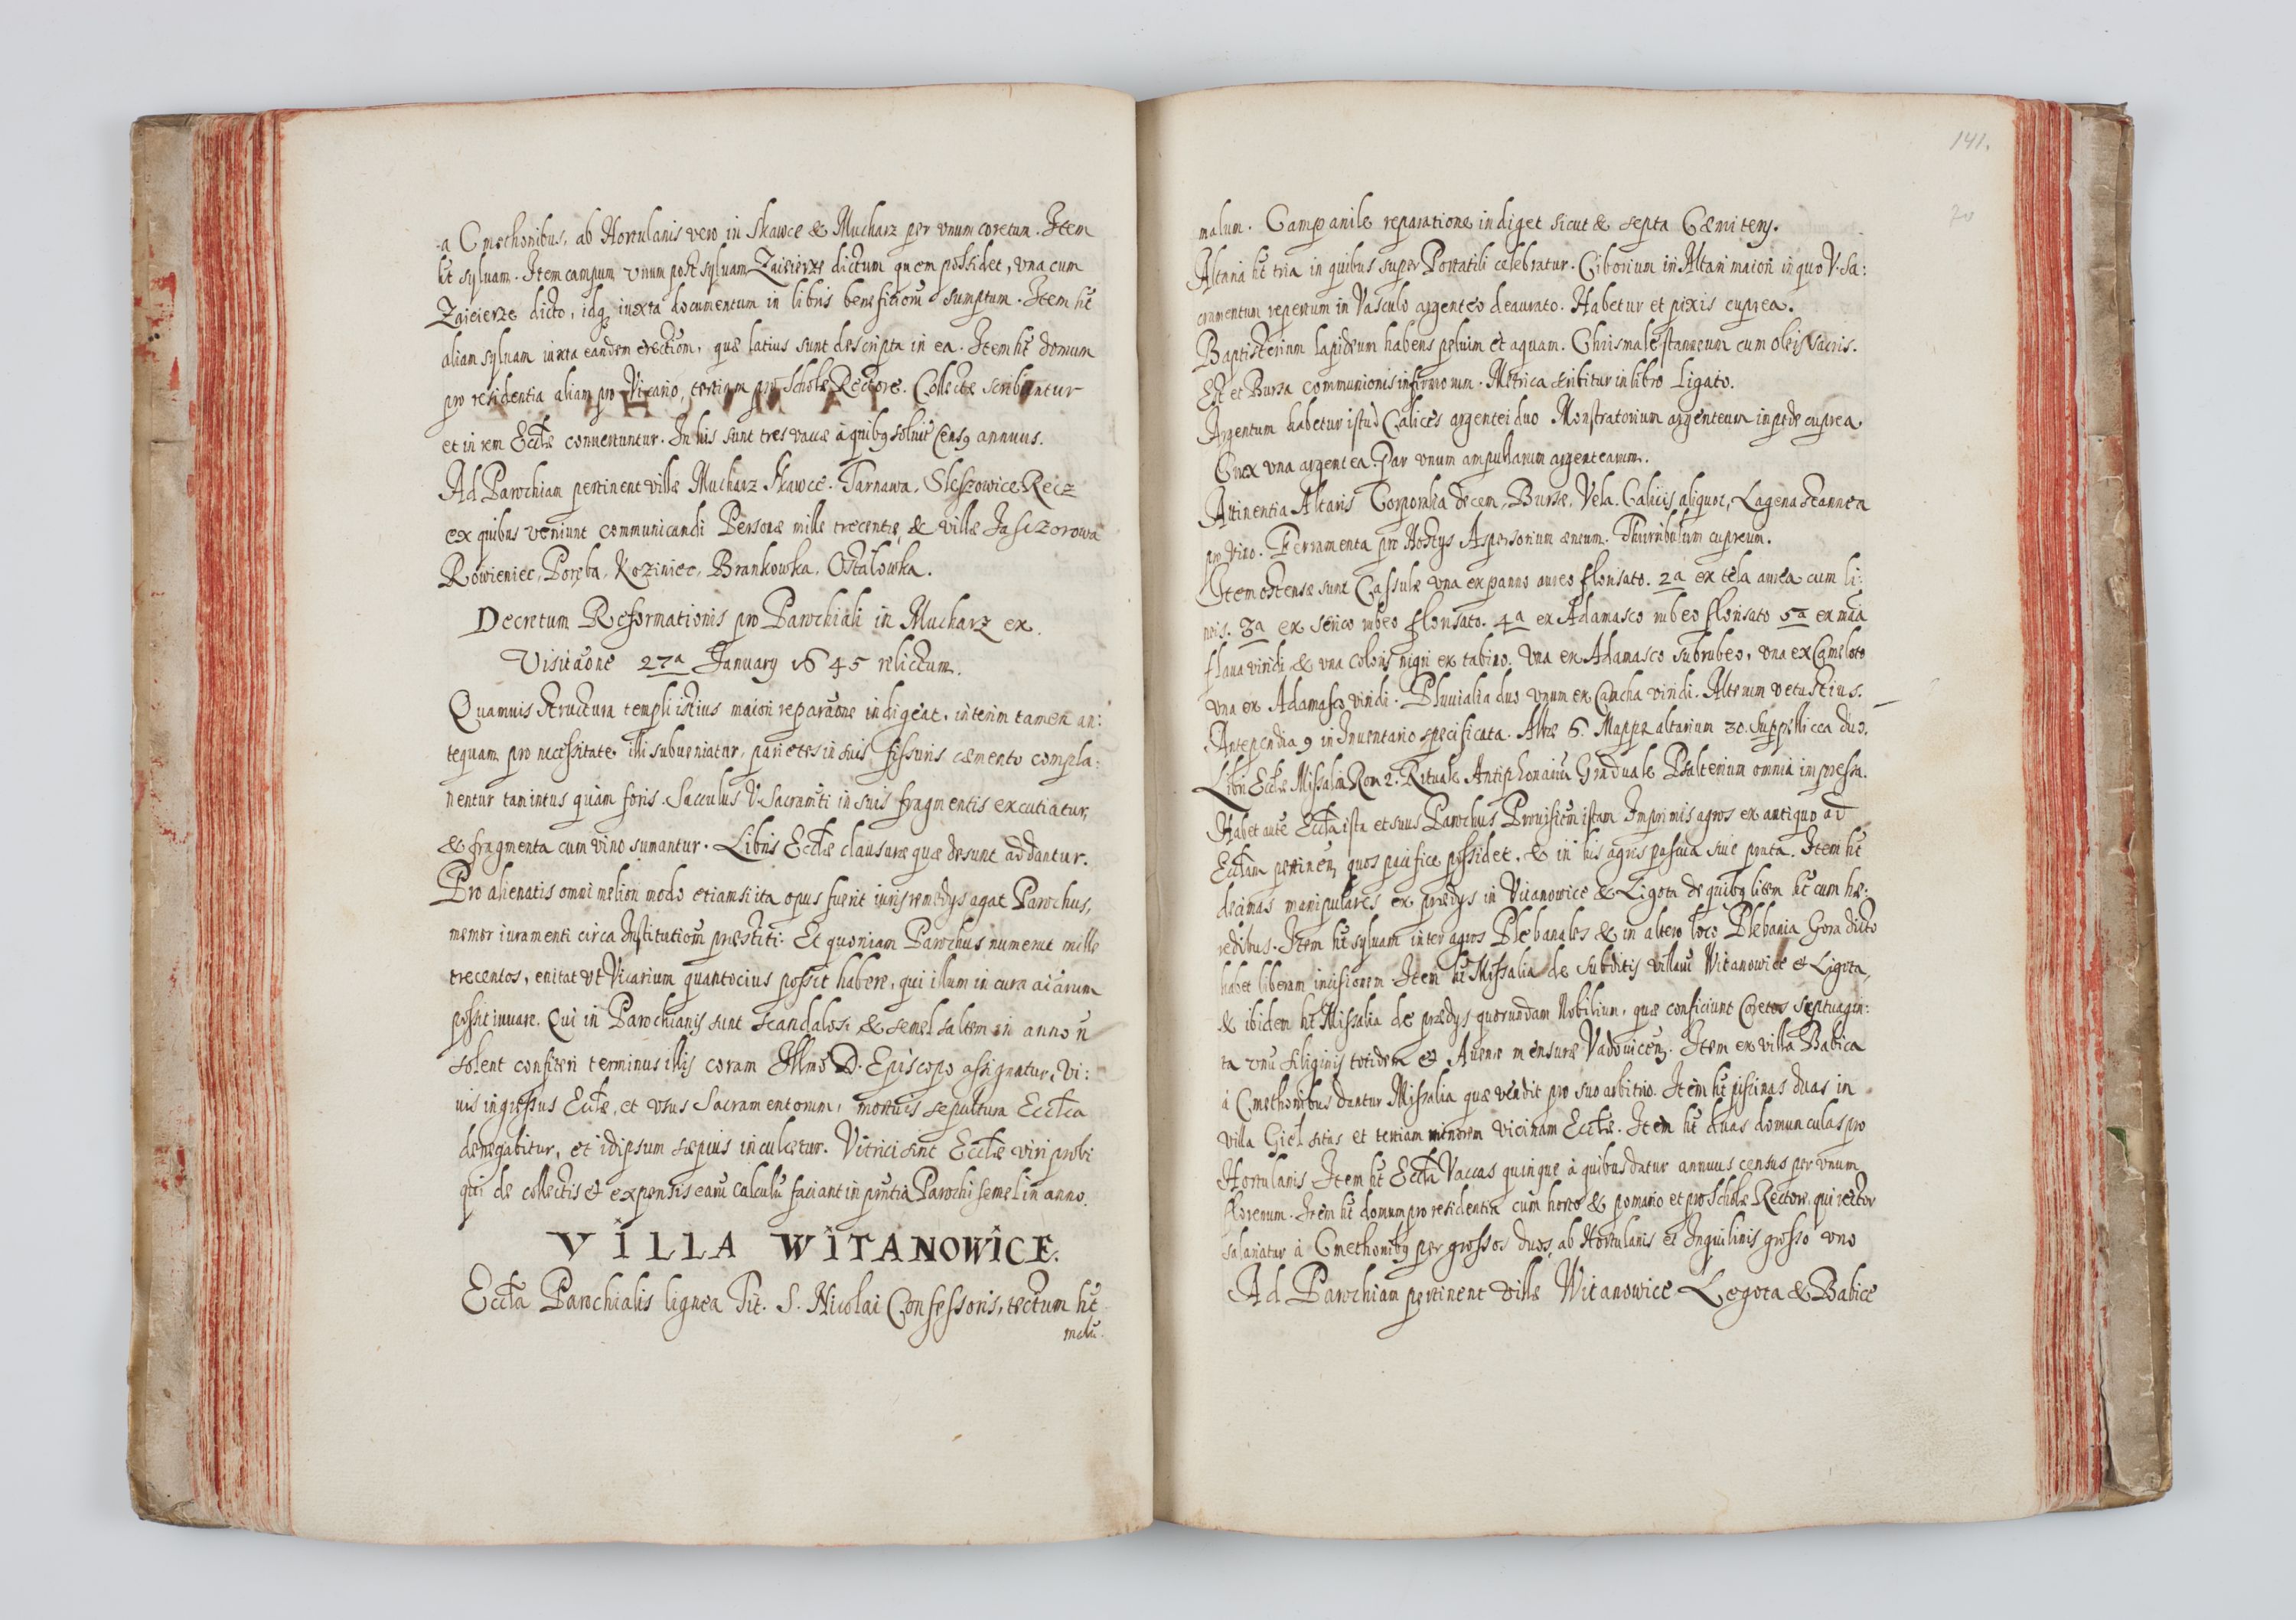 a Cmethonibus, ab Hortulanis vero in Skawce & Mucharz per vnum coretum. Item
ht syluam. Item campum vnum post syluam Zaieierze dictum quem possidet, vna cum
Zaieierze dicto, idq iuxta documentum in libris benefitiorū sumptum. Item ht
aliam syluam iuxta eandem erectiom, quæ latius sunt descripta in ea. Item ht domum
pro residentia aliam pro Vicario, tertiam pro Scholæ Rectore. Collectæ scribuntur
et in rem Eccłæ conuertuntur. In his sunt tres vaccæ à quibq soluit censq annuus.
Ad Parochiam pertinent villæ Mucharz Skawce. Tarnawa, Sleszowice Recz
ex quibus veniunt communicandi Personæ mille trecentæ, & villæ Jasczorowa
Rowieniec, Poręba, Koziniec, Brankowka, Ostałowka.
Decretum Reformationis pro Parochiali in Mucharz ex
Visitaōne 27a January 1645 relictum.
Quamuis structura templi istius maiori reparaōne indigeat, interim tamen an:
tequam pro necessitate illi subueniatur, parietes in suis fissuris cæmento compla:
nentur tam intus quàm foris. Sacculus V. Sacramti in suis fragmentis excutiatur,
& fragmenta cum vino sumantur. Libris Eccłæ clausuræ quæ desunt addantur.
Pro alienatis omni meliori modo etiamsi ita opus fuerit iuris remedys agat Parochus,
memor iuramenti circa Institutiom præstiti. Et quoniam Parochus numerat mille
trecentos, enitat vt Vicarium quantocius possit habere, qui illum in cura aīarum
possit iuuare. Qui in Parochianis sunt scandalosi & semel saltem in anno ñ
solent confiteri terminus illis coram Illmo D. Episcopo assignatur, vi:
uis ingressus Eccłæ, et vsus Sacramentorum, mortuis sepultura Ecclca
denegabitur, et idipsum sæpius inculcetur. Vitrici sint Eccłæ viri probi
qui de collectis & expensis earū calculū faciant in pntia Parochi semel in anno.
VILLA WITANOWICE.
Eccła Parochialis lignea Tit. S. Nicolai Confessoris, tectum ht
malū.
141.
20
malum. Campanile reparatione indiget sicut & septa Cæmiterÿ.
Altaria ht tria in quibus super Portatili celebratur. Ciborium in Altari maiori in quo V. Sa:
cramentum repertum in Vasculo argenteo deaurato. Habetur et pixis cuprea.
Baptisterium lapideum habens peluim et aquam. Chrismale stanneum cum oleis sacris.
Est et Bursa communionis infirmorum. Metrica scribitur in libro Ligato.
Argentum habetur istud Calices argentei duo Monstratorium argenteum in pede cuprea
Crux vna argentea. Par vnum ampullarum argentearum.
Attinentia Altaris Corporalia decem, Bursæ, Vela. Calicis aliquot, Lagena stannea
pro vino. Ferramenta pro Hostys Aspersorium æneum. Thuribulum cupreum.
Item ostensæ sunt Casulæ vna ex panno aureo florisato. 2a ex tela aurea cum li:
neis. 3a ex serico rubeo florisato. 4a ex Adamasco rubeo florisato 5a ex mña
flaua viridi, & vna coloris nigri ex tabino. Vna ex Adamasco subrubeo, vna ex Cameloto
vna ex Adamasco viridi. Pluuialia duo vnum ex Cancha viridi. Alterum vetustius.
Antependia 9 in Inuentario specificata. Albæ 6. Mappæ altarium 30. Suppellicea duo.
Libri Eccłæ Missalia Rom 2. Rituale Antiphonariū Graduale Psalterium omnia impressa.
Habet autē Eccła ista et suus Parochus Prouisiom istam Imprimis agros ex antiquo ad
Eccłam pertinen, quos pacifice possidet, & in his agris pascua siue prata. Item ht
decimas manipulares ex prædys in Vitanowice & Ligota de quibq litem ht cum hæ:
redibus. Item ht syluam inter agros Plebanales & in altero loco Plebania Gora dicto
habet liberam incisionem Item ht Missalia de subditis villarū Witanowice et Ligota,
& ibidem ht Missalia de prædys quorundam Nobilium, quæ conficiunt Coretos septuagin:
ta vnū siliginis totidem et Auenæ mensuræ Vadouicen. Item ex villa Babica
à Cmethonibus dantur Missalia quæ vendit pro suo arbitrio. Item ht piscinas duas in
villa Giel sitas et tertiam minorem vicinam Eccłæ. Item ht duas domunculas pro
Hortulanis Item ht Eccła Vaccas quinque à quibus datur annuus census per vnum
florenum. Item ht domum pro residentia cum horto & pomario et pro Scholæ Rectore, qui rector
salariatur à Cmethonibq per grossos duos, ab Hortulanis et Inquilinis grosso vno
Ad Parochiam pertinent villæ Witanowice Legota & Babice